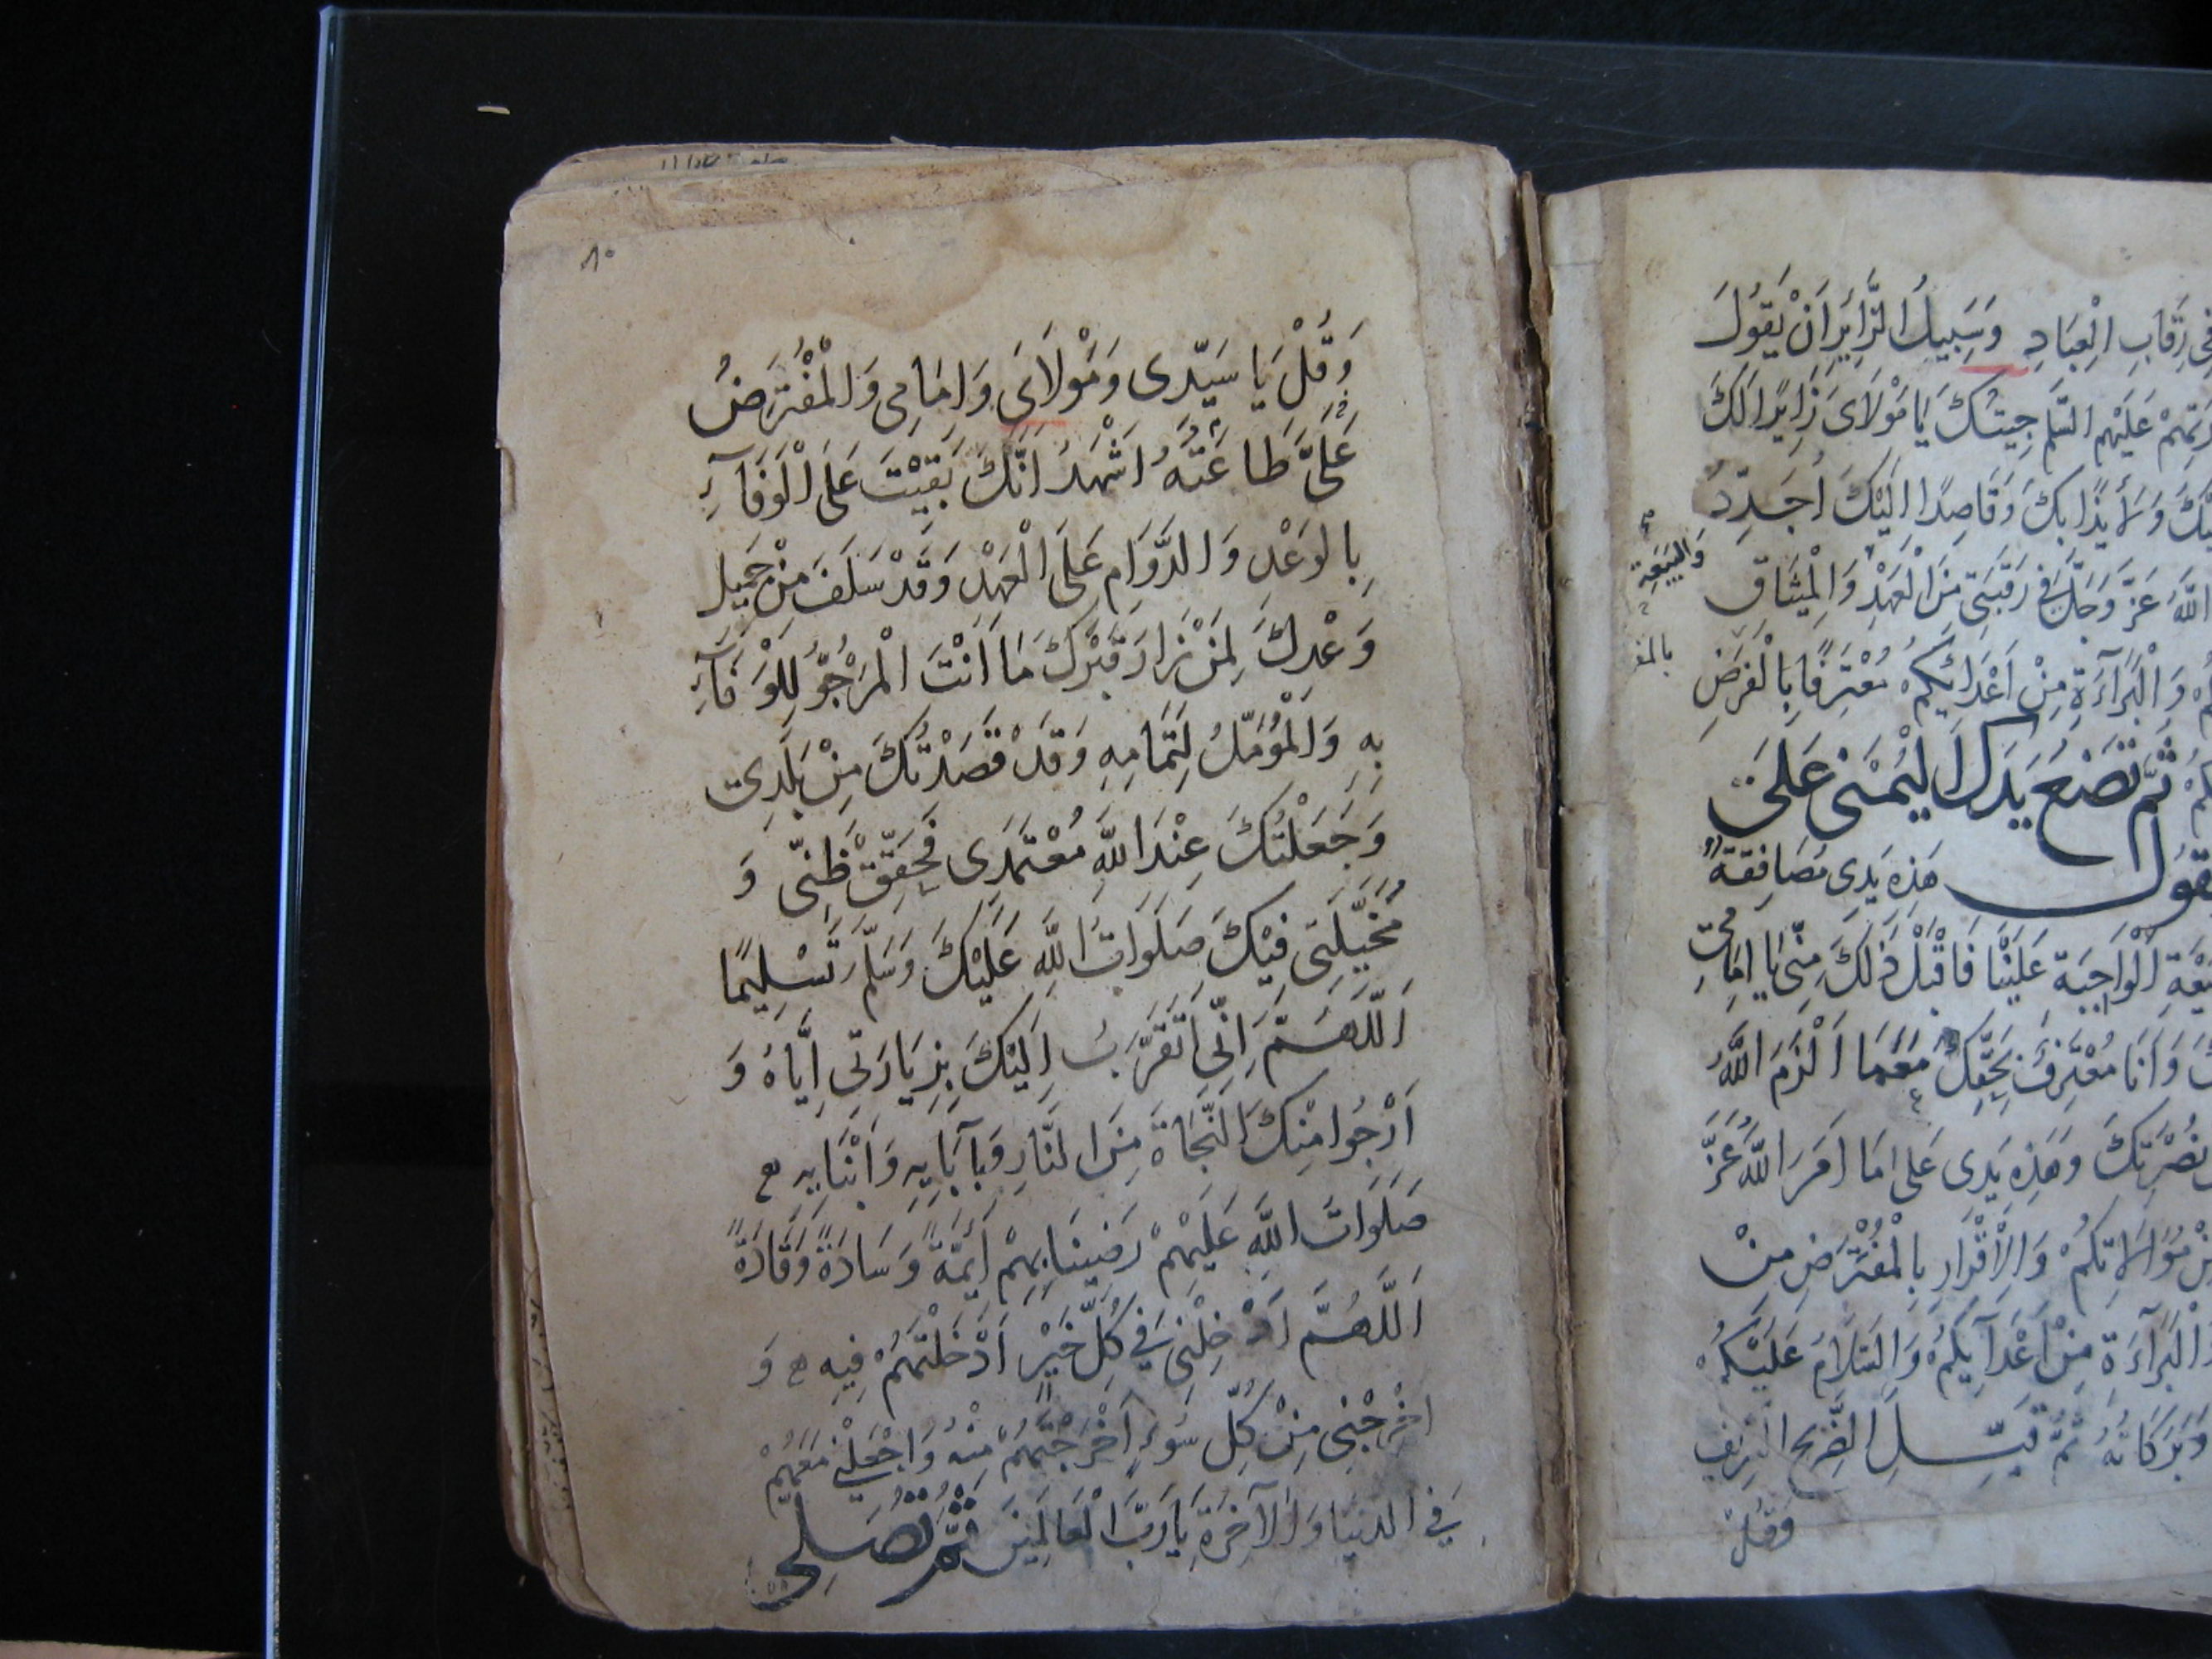 فِى رِقَابِ الْعِبَادِ وَسَبِيلُ الزَّايِرِ اَنْ يَقُولَ
عَلَيْهِم السَّلم جِيتُكَ يَا مَوْلَاىَ زَايِرًا لَكَ
وَلَايِذًا بِكَ وَقَاصِدًا اِلَيْكَ اُجَدِّدُ
اللّٰهُ عَزَّ وَجَلَّ فِى رَقَبَتِى مِنَ الْعَهْدِ وَالْمِيثَاقِ
وَالْبَيْعَةِ
وَالْبَرَآءَةِ مِنْ اَعْدَائِكُمْ مُعْتَرِفًا بِالْفَرْضِ
ثُمَّ تَضَعُ يَدَكَ الْيُمْنَى عَلَى
هَذِه يَدِى مُصَافِقَةٌ
الْوَاجِبَةِ عَلَيْنَا فَاقْبَلْ ذَلِكَ مِنِّى يَا اِمَامِى
وَاَنَا مُعْتَرِفٌ بِحَقِّكَ مَعَمَا اَلْزَمَ اللّٰهُ
نُصْرَتِكَ وَهَذِهِ يَدِى عَلَى مَا اَمَرَ اللّٰهُ عَزَّ
مُوَالَاتِكُمْ وَالْاِقْرَارِ بِالْمُفْتَرَضِ مِنْ
وَالْبَرَآءَةِ مِنْ اَعْدَآيِكُمْ وَالسَّلَامُ عَلَيْكُمْ
وَبَرَكَاتُهُ ثُمَّ قَبِّلِ الضَّرِيحَ الشَّرِيفَ
وَقُلْ
٨٠
وَقُلْ يَا سَيِّدِى وَمَوْلَاىَ وَاِمَامِى وَالْمُفْتَرَضُ
عَلَىَّ طَاعَتُهُ اَشْهَدُ اَنَّكَ بَقِيْتَ عَلَى الْوَفَآءِ
بِالوَعْدِ وَالدَّوَامِ عَلَى الْعَهْدِ وَقَدْ سَلَفَ مِنْ جَمِيلِ
وَعْدِكَ لِمَنْ زَارَ قَبْرَكَ مَا اَنْتَ الْمَرْجُوُّ لِلْوَفَآءِ
بِهِ وَالْمُؤَمَّلُ لِتَمَامِهِ وَقَدْ قَصَدْتُكَ مِنْ بَلَدِى
وَجَعَلْتُكَ عِنْدَ اللّٰهِ مُعْتَمَدِى فَحَقِّقْ ظَنِّى وَ
مُخَيَّلَتِى فِيْكَ صَلَوَاتُ اللّٰهِ عَلَيْكَ وَسَلَّمَ تَسْلِيمًا
اَللّٰهُمَّ اِنِّى اَتَقَرَّبُ اِلَيْكَ بِزِيَارَتِى اِيَّاهُ وَ
اَرْجُوا مِنْكَ النَّجَاةَ مِنَ النَّارِ وَبِآبَايِهِ وَاَبْنَايِهِ
صَلَوَاتُ اللّٰهِ عَلَيْهِمْ رَضِينَا بِهِمْ اَئِمَّةً وَسَادَةً وَقَادَةً
اَللّٰهُمَّ اَدْخِلْنِى فِى كُلِّ خَيْرٍ اَدْخَلْتَهُمْ فِيهِ وَ
اخْرِجْنِى مِنْ كُلِّ سُوءٍ اَخْرَجْتَهُمْ مِنْهُ وَاجْعَلْنِى مَعَهُمْ
فِى الدنيَا وَالآخِرَةِ يَا رَبَّ الْعَالَمِينَ ثُمَّ تُصَلِّى